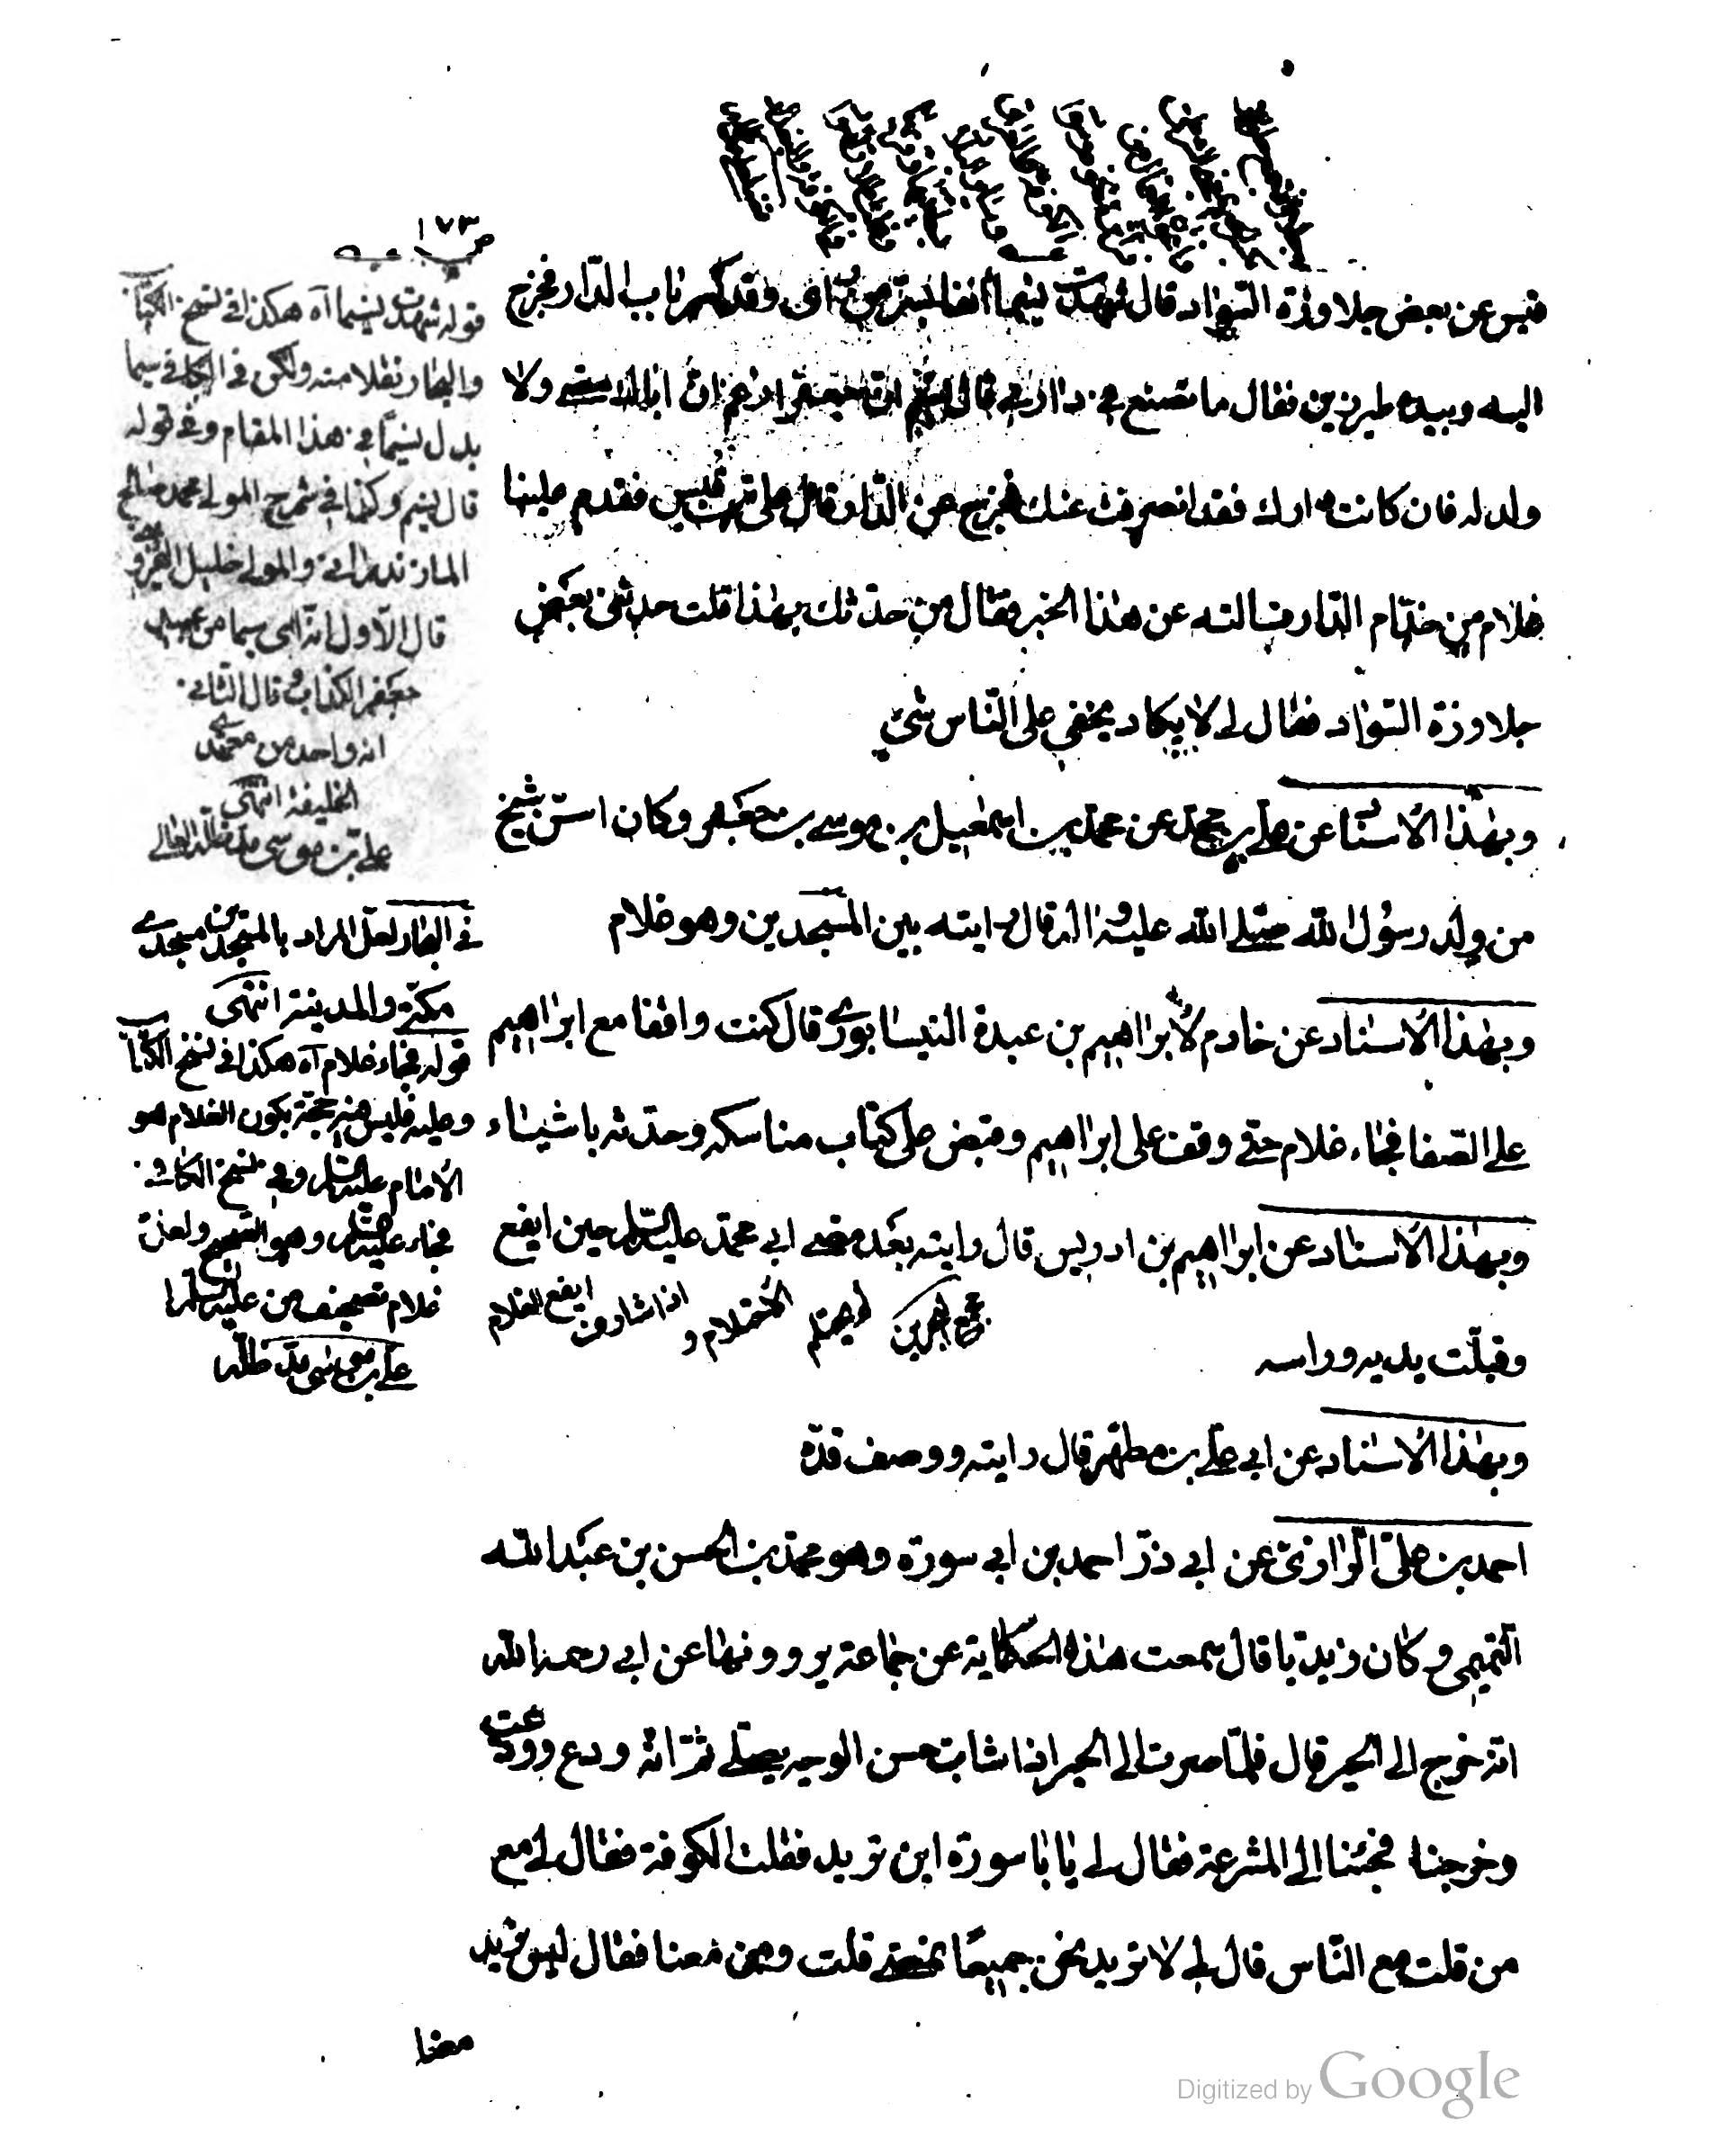 ص ١٧٣
قيس عن بعض جلاوزة السواد قال شهدت نسيما آنفا بسر من رأى وقد كسر باب الدار فخرج
اليه وبيده طبرزين فقال ما تصنع في داري قال نسيم ان جعفرا زعم ان اباك مضى ولا
ولد له فان كانت دارك فقد انصرفت عنك فخرج عن الدار قال علي بن قيس فقدم علينا
غلام من خدّام الدار فسالته عن هذا الخبر فقال من حدثك بهذا قلت حدثني بعض
جلاوزة السواد فقال لي لا يكاد يخفى على الناس شئ
وبهذا الاسناد عن علي بن محمد عن محمد بن اسمعيل بن موسى بن جعفر وكان اسنّ شيخ
من ولد رسول الله صلى الله عليه واله قال رايته بين المسجدين وهو غلام
وبهذا الاسناد عن خادم لابراهيم بن عبدة النيسابوري قال كنت واقفا مع ابراهيم
على الصفا فجاء غلام حتى وقف على ابراهيم وقبض على كتاب مناسكه وحدثه باشياء
وبهذا الاسناد عن ابراهيم بن ادريس قال رايته بعد مضى ابي محمد عليه السلام حين ايفع
وقبّلت يديه وراسه
ايفع الغلام اذا شارف الاحتلام و لم يحتلم مجمع البحرين
وبهذا الاسناد عن ابي علي بن مطهر قال رايته ووصف قدّه
احمد بن علي الرازي عن ابي ذرّ احمد بن ابي سورة وهو محمد بن الحسن بن عبد الله
التميمي وكان زيديّا قال سمعت هذه الحكاية عن جماعة يروونها عن ابي رحمه الله
انه خرج الى الحير قال فلمّا صرت الى الحير اذا شابّ حسن الوجه يصلي ثم انه ودع وودعت
وخرجنا فجئنا الى المشرعة فقال لي يا با سورة اين تريد فقلت الكوفة فقال لي مع
من قلت مع الناس قال لي لا تريد نحن جميعًا نمضي قلت ومن معنا فقال ليس نريد
معنا
قوله شهدت نسيما آه هكذا في نسخ الكتاب
والبحار نقلا منه ولكن في الكافي سيما
بدل نسيمًا في هذا المقام وفي قوله
قال نسيم وكذا في شرح المولى محمد صالح
المازندراني والمولى خليل القزويني
قال الاول انه اسم من عبيد
جعفر الكذاب وقال الثاني
انه واحد من معتمدي
الخليفة انتهى
علي بن موسى مد ظله العالي
في البحار لعل المراد بالمسجدين مسجدي
مكّة والمدينة انتهى
قوله فجاء غلام آه هكذا في نسخ الكتاب
وعليه فليس فيه حجة بكون الغلام هو
الامام عليه السلام وفي نسخ الكافي
فجاء عليه السلام وهو الصحيح ولعل
غلام تصحيف من عليه السلام
علي بن موسى مد ظله
Digitized by Google